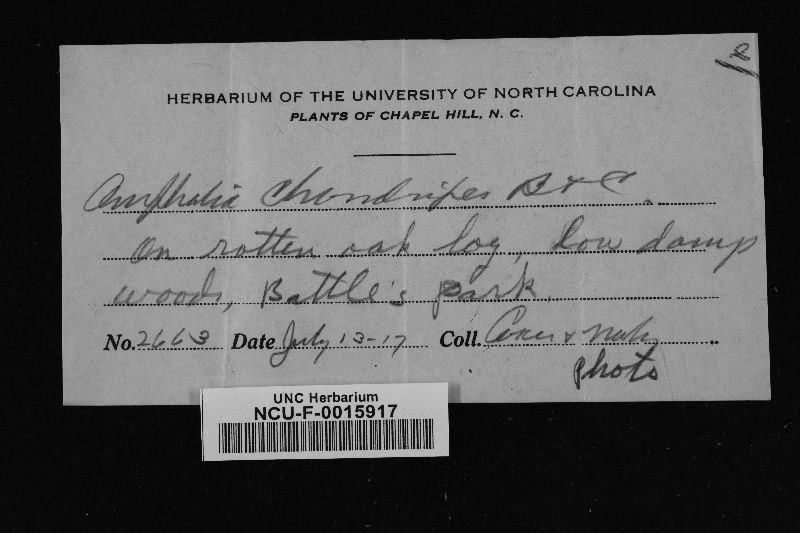 HERBARIUM OF THE UNIVERSITY OF NORTH CAROLINA
PLANTS OF CHAPEL HILL, N. C.
Omphalia Chondripes B & C.
On rotten oak log, low damp
woods, Battle's park.
No. 2663 Date July 13-17 Coll. Coker &
photo
UNC Herbarium
NCU-F-0015917